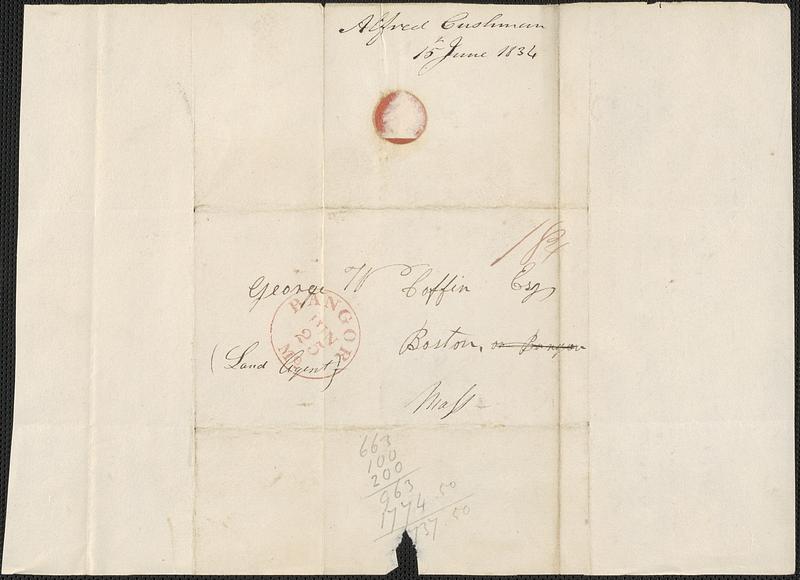 Alfred Cushman
15th June 1834
18¾
George W Coffin Esq
BANGOR
JUN
25
Me
Boston, or Bangor
(Land Agent)
Mass
663
100
200
963
1774.50
737.50